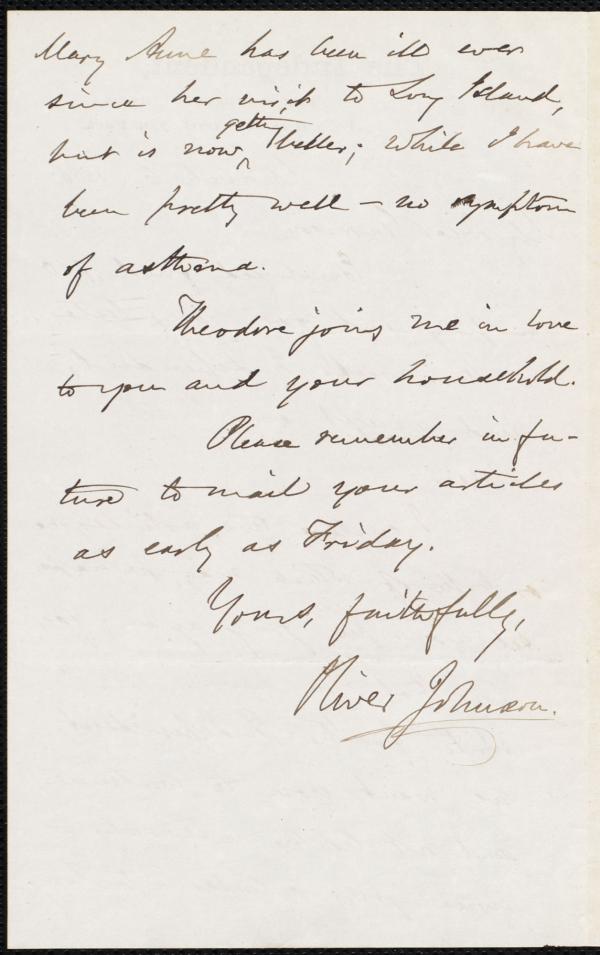 Mary Anne has been ill ever
since her visit to Long Island,
but is now getting better; while I have
been pretty well — no symptom
of asthma.
Theodore joins me in love
to you and your household.
Please remember in fu-
ture to mail your articles
as early as Friday.
Yours, faithfully,
Oliver Johnson.